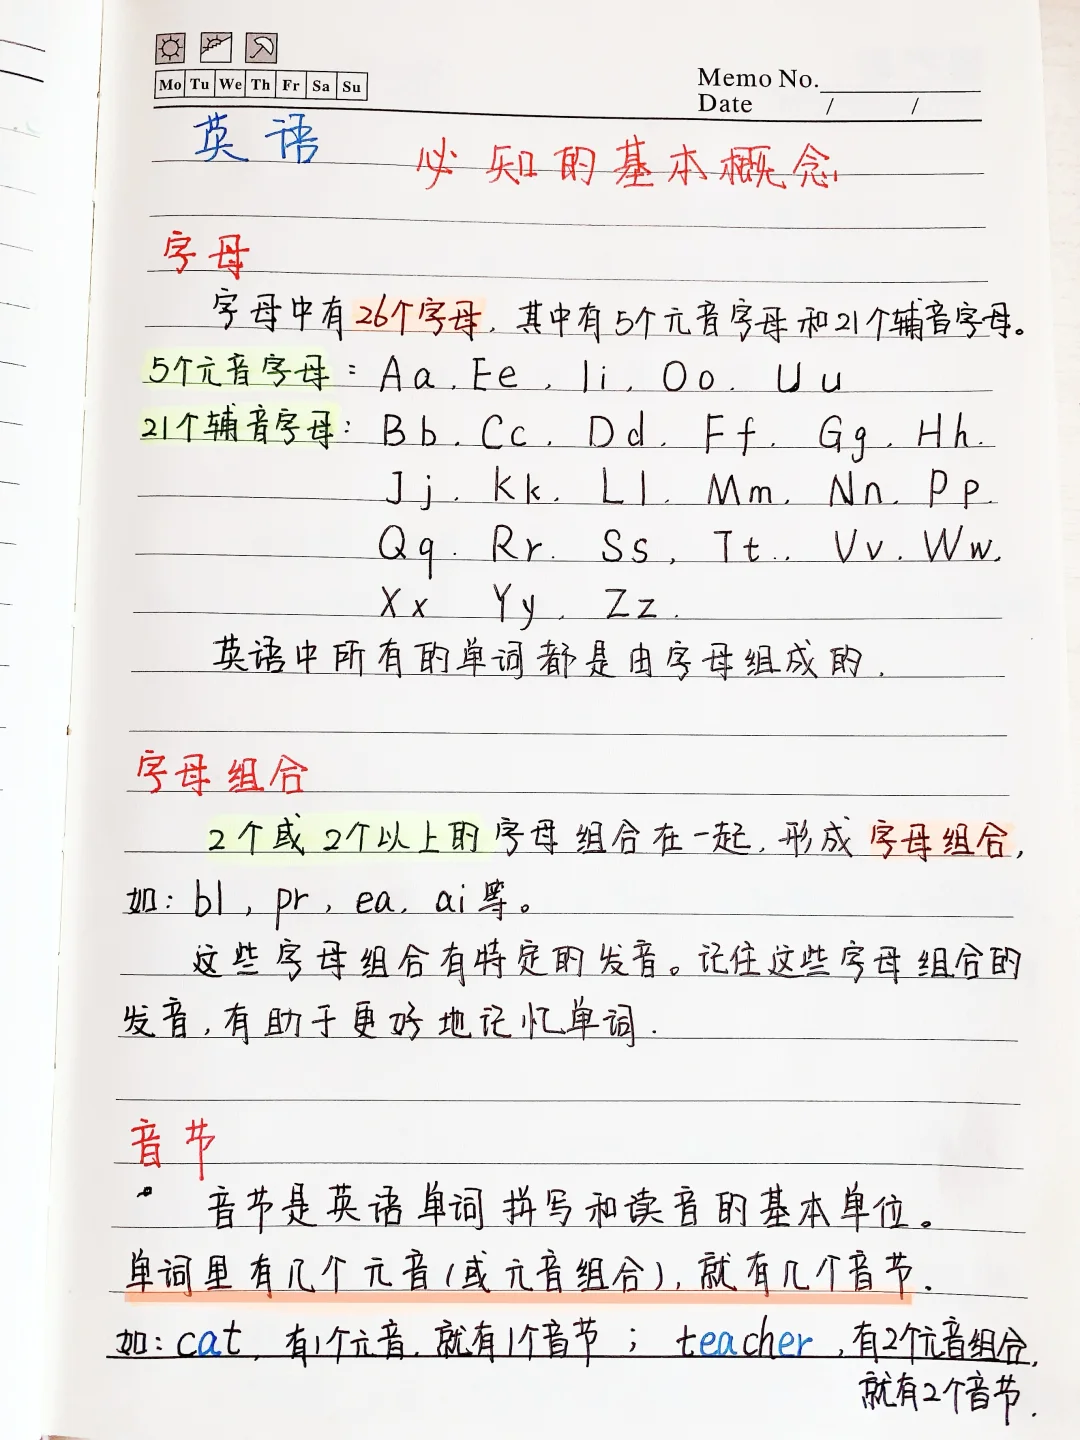 Mo Tu We Th Fr Sa Su
Memo No.
Date / /
英语 必知的基本概念
字母
字母中有26个字母,其中有5个元音字母和21个辅音字母。
5个元音字母: Aa, Ee, Ii, Oo, Uu
21个辅音字母: Bb, Cc, Dd, Ff, Gg, Hh,
Jj, Kk, Ll, Mm, Nn, Pp,
Qq, Rr, Ss, Tt, Vv, Ww,
Xx Yy, Zz.
英语中所有的单词都是由字母组成的.
字母组合
2个或2个以上的字母组合在一起,形成字母组合,
如: bl, pr, ea, ai等。
这些字母组合有特定的发音。记住这些字母组合的
发音,有助于更好地记忆单词.
音节
音节是英语单词拼写和读音的基本单位。
单词里有几个元音(或元音组合),就有几个音节.
如: cat, 有1个元音,就有1个音节; teacher,有2个元音组合,
就有2个音节.